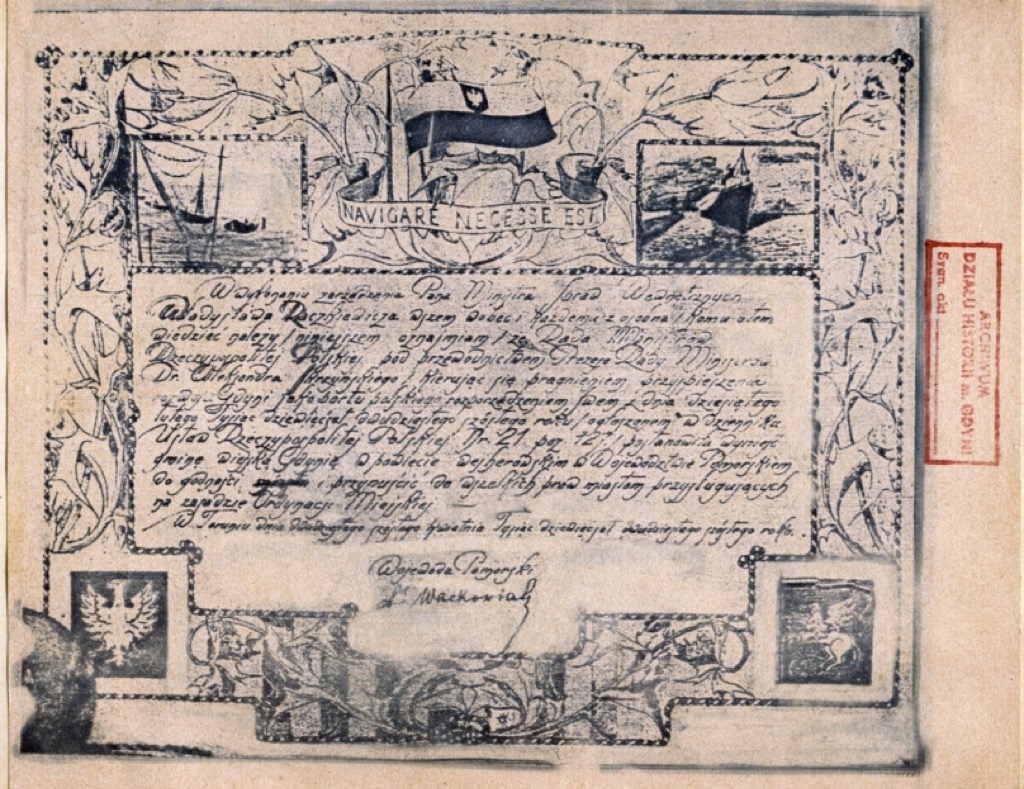 NAVIGARE NECESSE EST
W wykonaniu zarządzenia Pana Ministra Spraw Wewnętrznych
Władysława Raczkiewicza wszem wobec i każdemu z osobna, komu o tem
wiedzieć należy, niniejszem oznajmiam, że Rada Ministrów
Rzeczypospolitej Polskiej pod przewodnictwem Prezesa Rady Ministrów
Dr. Aleksandra Skrzyńskiego, kierując się pragnieniem przyspieszenia
Gdyni jako portu polskiego rozporządzeniem swem z dnia dziesiątego
lutego Tysiąc dziewięćset dwudziestego szóstego roku ogłoszonem w dzienniku
Ustaw Rzeczypospolitej Polskiej Nr. 21, poz. 127, postanowiła wynieść
gminę wiejską Gdynię w powiecie Wejherowskim w Województwie Pomorskiem
do godności i przypuścić do wszelkich praw miastom przysługujących
na zasadzie Ordynacji Miejskiej.
W Toruniu dnia dwudziestego szóstego kwietnia Tysiąc dziewięćset dwudziestego szóstego roku.
Wojewoda Pomorski
Dr Wachowiak
ARCHIWUM
DZIAŁU HISTORII m. GDYNI
Sygn. akt